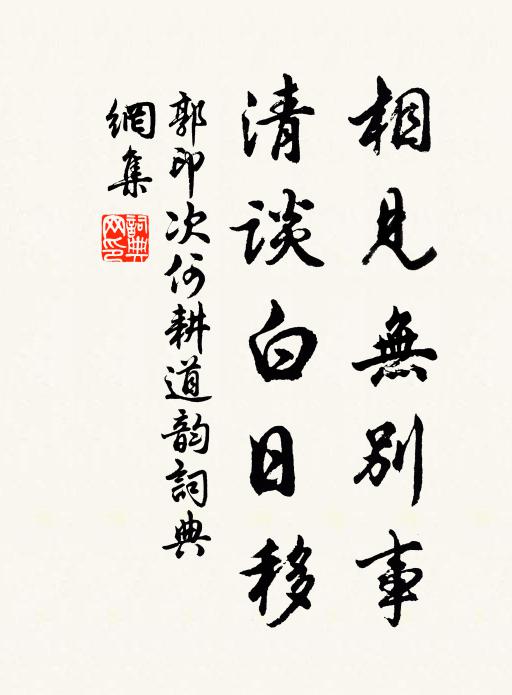 相見無別事
清談白日移
郭印次何耕道韵詞典
網集
詞典
网印